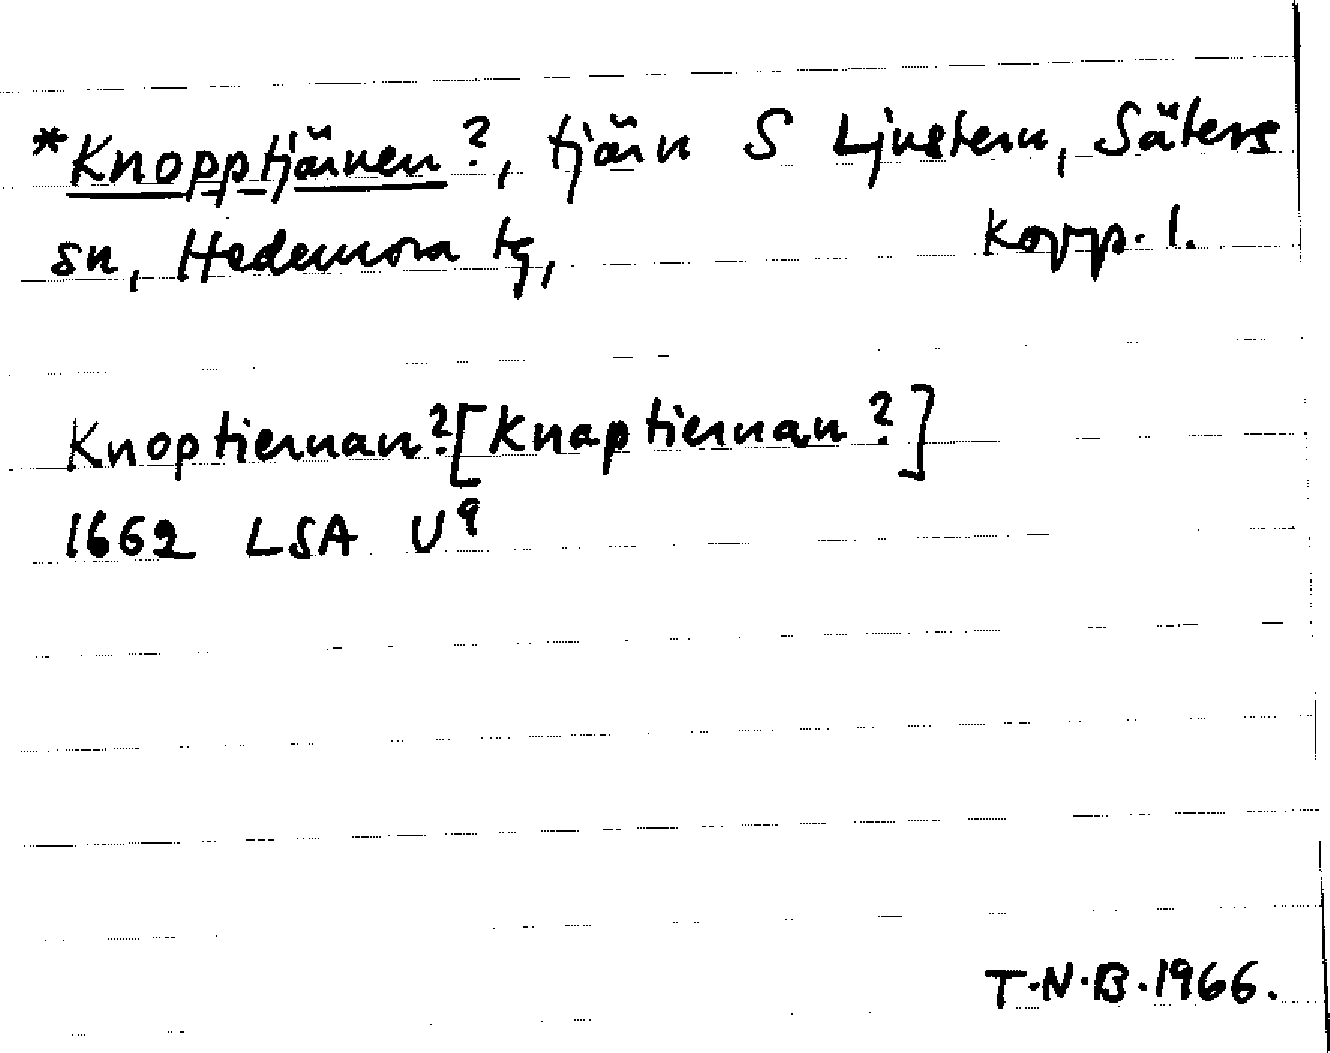 *Knopptjärnen?, tjärn S Ljustern, Säters
sn, Hedemora tg, Kopp. l.
Knoptiernan? [Knaptiernan?]
1662 LSA U9
T.N.B. 1966.